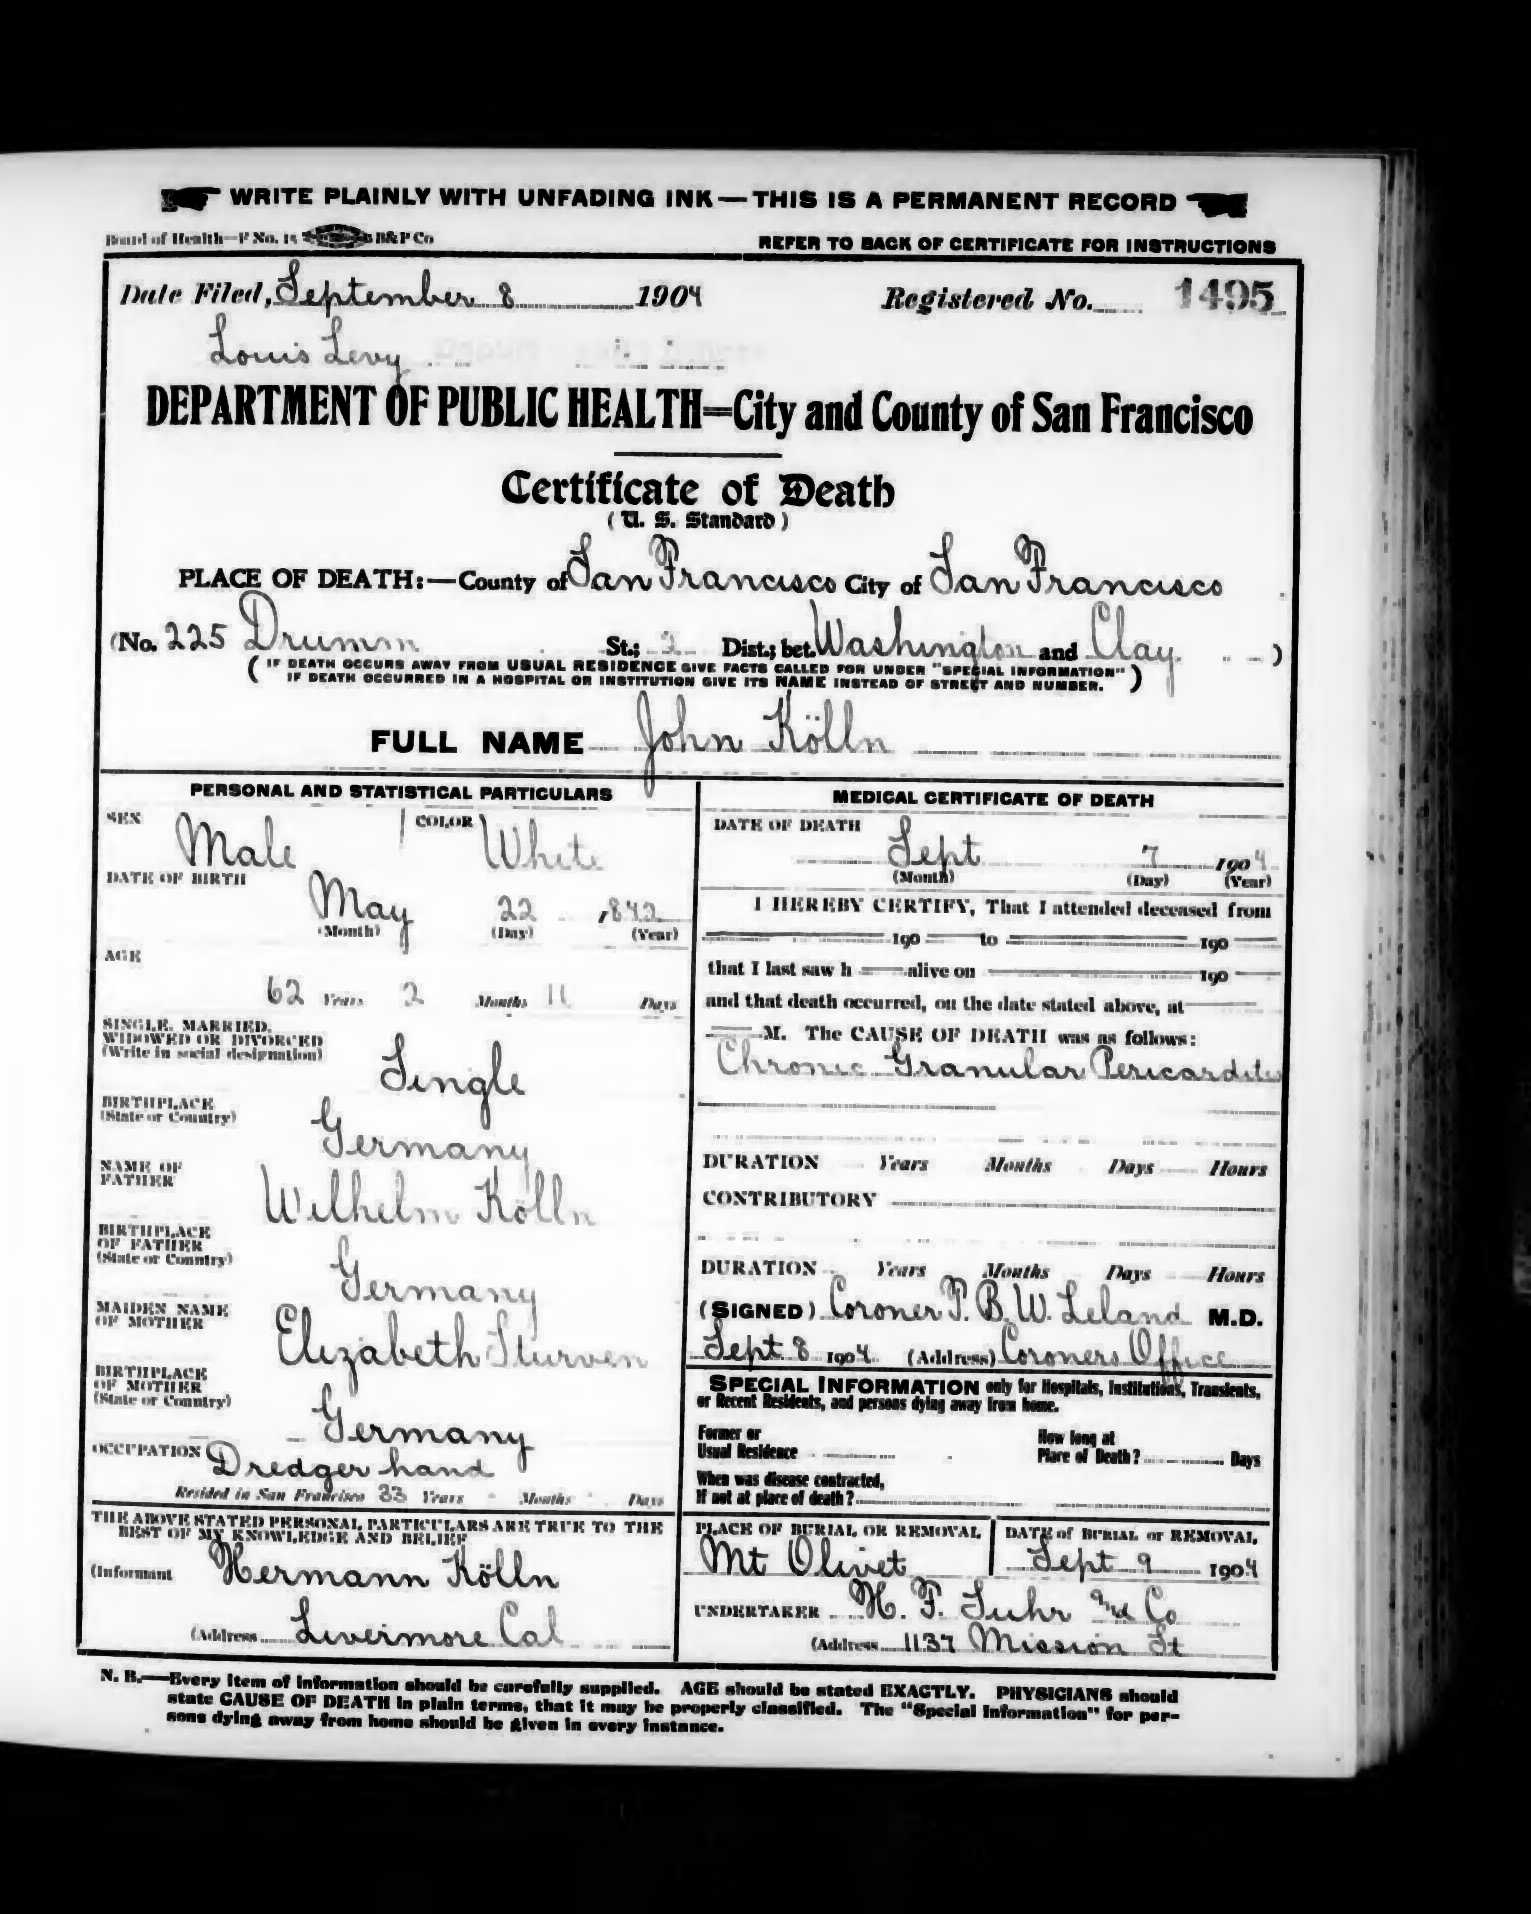 WRITE PLAINLY WITH UNFADING INK—THIS IS A PERMANENT RECORD
Board of Health—F No. 15 B&P Co
REFER TO BACK OF CERTIFICATE FOR INSTRUCTIONS
Date Filed, September 8 1904 Registered No. 1495
Louis Levy
DEPARTMENT OF PUBLIC HEALTH=City and County of San Francisco
Certificate of Death
( U. S. Standard )
PLACE OF DEATH:—County of San Francisco City of San Francisco
(No. 225 Drumm St.; 2 Dist.; bet. Washington and Clay )
( IF DEATH OCCURS AWAY FROM USUAL RESIDENCE GIVE FACTS CALLED FOR UNDER "SPECIAL INFORMATION"
IF DEATH OCCURRED IN A HOSPITAL OR INSTITUTION GIVE ITS NAME INSTEAD OF STREET AND NUMBER. )
FULL NAME John Kölln
PERSONAL AND STATISTICAL PARTICULARS
SEX Male COLOR White
DATE OF BIRTH
May 22 , 842
(Month) (Day) (Year)
AGE
62 Years 2 Months 11 Days
SINGLE, MARRIED,
WIDOWED OR DIVORCED
(Write in social designation)
Single
BIRTHPLACE
(State or Country)
Germany
NAME OF
FATHER
Wilhelm Kölln
BIRTHPLACE
OF FATHER
(State or Country)
Germany
MAIDEN NAME
OF MOTHER
Elizabeth Sturven
BIRTHPLACE
OF MOTHER
(State or Country)
Germany
OCCUPATION Dredger hand
Resided in San Francisco 33 Years Months Days
THE ABOVE STATED PERSONAL PARTICULARS ARE TRUE TO THE
BEST OF MY KNOWLEDGE AND BELIEF
(Informant Hermann Kölln
(Address Livermore Cal
MEDICAL CERTIFICATE OF DEATH
DATE OF DEATH
Sept 7 1904
(Month) (Day) (Year)
I HEREBY CERTIFY, That I attended deceased from
190 to 190
that I last saw h alive on 190
and that death occurred, on the date stated above, at
M. The CAUSE OF DEATH was as follows:
Chronic Granular Pericarditis
DURATION Years Months Days Hours
CONTRIBUTORY
DURATION Years Months Days Hours
(SIGNED) Coroner T. B. W. Leland M.D.
Sept 8 1904 (Address) Coroners Office
SPECIAL INFORMATION only for Hospitals, Institutions, Transients,
or Recent Residents, and persons dying away from home.
Former or
Usual Residence
How long at
Place of Death? Days
When was disease contracted,
If not at place of death?
PLACE OF BURIAL OR REMOVAL
Mt Olivet
DATE of BURIAL or REMOVAL
Sept 9 1904
UNDERTAKER H. F. Suhr and Co
(Address 1137 Mission St
N. B.—Every item of information should be carefully supplied. AGE should be stated EXACTLY. PHYSICIANS should
state CAUSE OF DEATH in plain terms, that it may be properly classified. The "Special Information" for per-
sons dying away from home should be given in every instance.